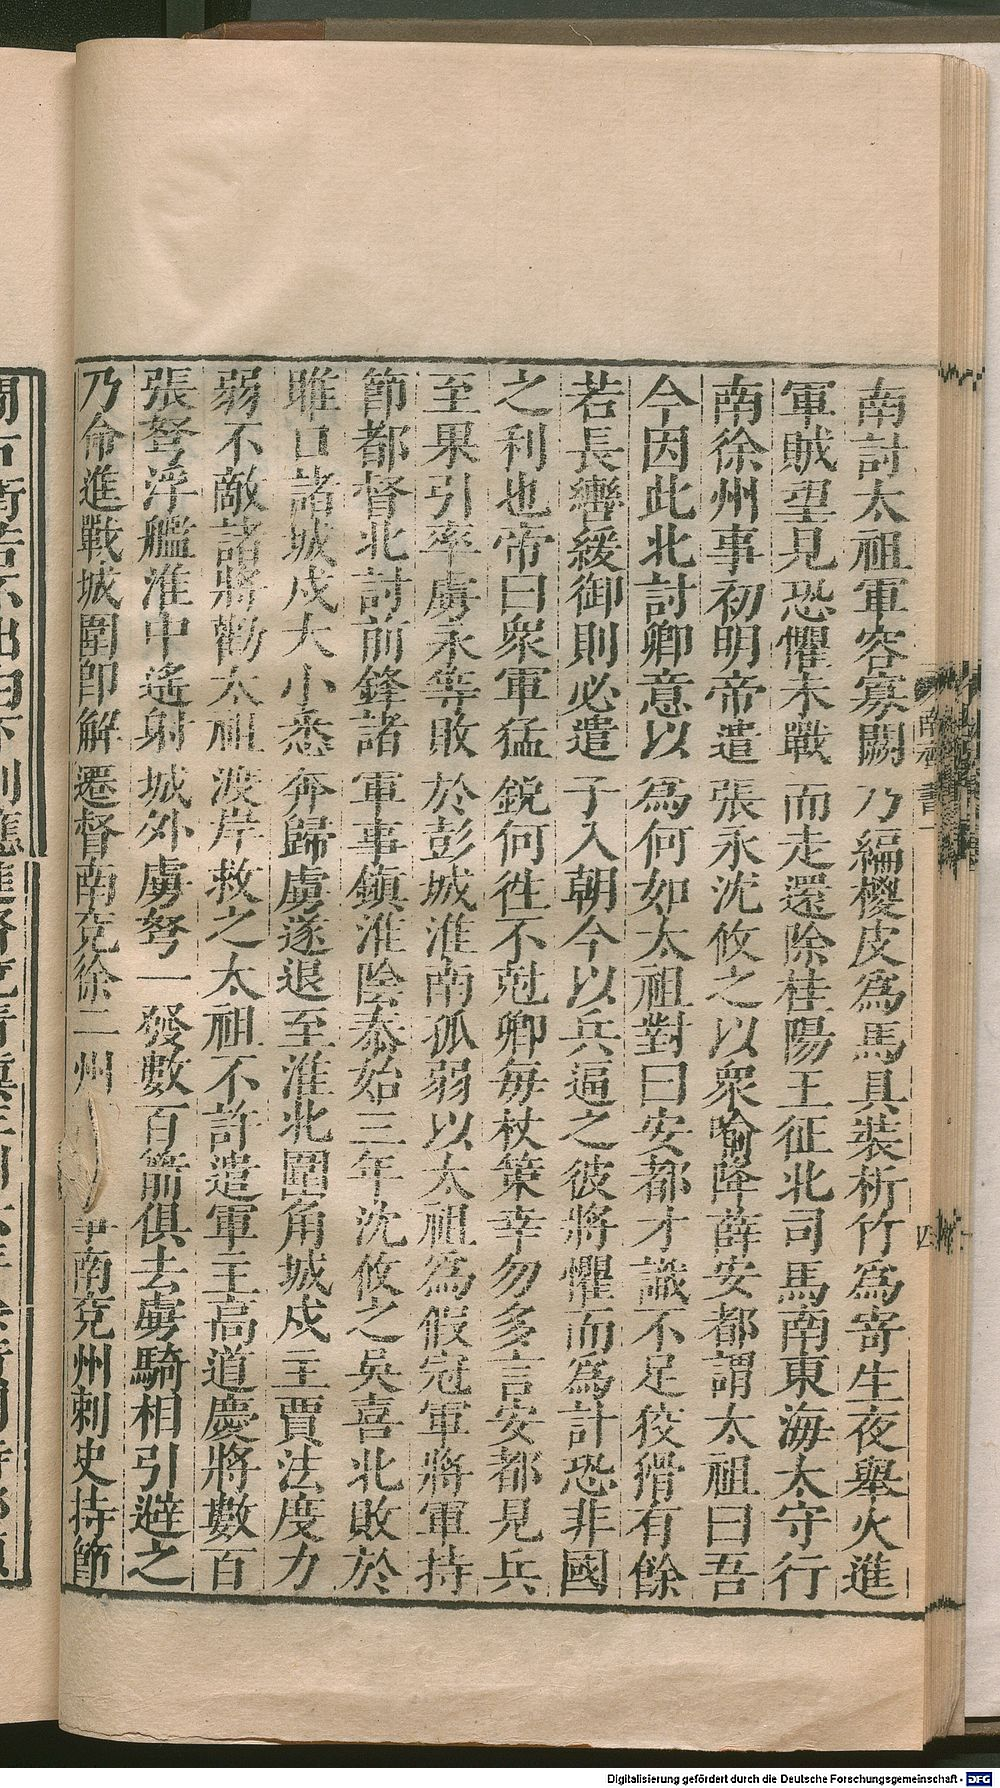 南討太祖軍容寡闕乃編椶皮爲馬具裝析竹爲寄生夜舉火進
軍賊望見恐懼未戰而走還除桂陽王征北司馬南東海太守行
南徐州事初明帝遣張永沈攸之以衆喻降薛安都謂太祖曰吾
今因此北討卿意以爲何如太祖對曰安都才識不足狡猾有餘
若長轡緩御則必遣子入朝今以兵逼之彼將懼而爲計恐非國
之利也帝曰衆軍猛銳何徃不尅卿每杖策幸勿多言安都見兵
至果引率虜永等敗於彭城淮南孤弱以太祖爲假冠軍將軍持
節都督北討前鋒諸軍事鎮淮陰泰始三年沈攸之吳喜北敗於
睢口諸城戍大小悉奔歸虜遂退至淮北圍角城戍主賈法度力
弱不敵諸將勸太祖渡岸救之太祖不許遣軍主高道慶將數百
張弩浮艦淮中遙射城外虜弩一發數百箭俱去虜騎相引避之
乃命進戰城圍卽解遷督南兗徐二州南兗州刺史持節
Digitalisierung gefördert durch die Deutsche Forschungsgemeinschaft - DFG